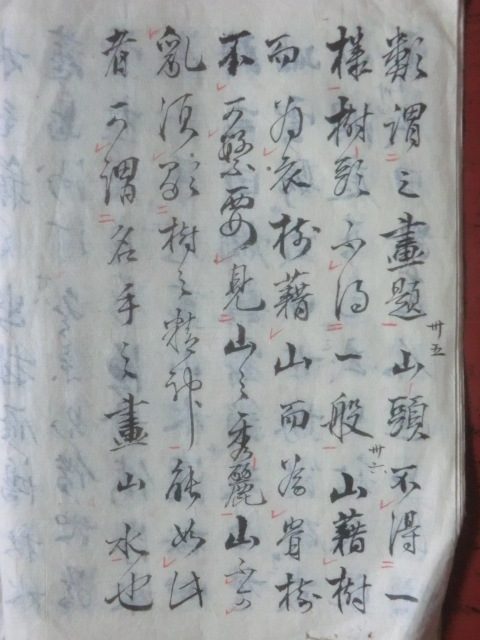 類謂之畫題山頭不得一
卅五
樣樹頭不得一般山藉樹
卅六
而為衣樹藉山而為骨樹
不可繁要見山之秀麗山不可
亂須顯樹之精神能如此
者可謂名手之畫山水也